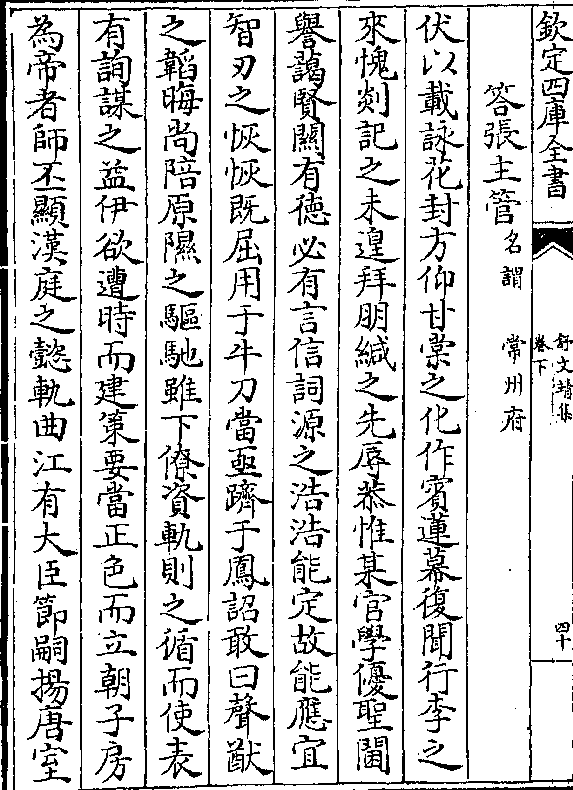 欽定四庫全書
舒文靖集
卷下
四十
答張主管名謂 常州府
伏以載詠花封方仰甘棠之化作賓蓮幕復聞行李之
來愧剡記之未遑拜朋緘之先辱恭惟某官學優聖閫
譽藹賢關有德必有言信詞源之浩浩能定故能應宜
智刃之恢恢既屈用于牛刀當亟躋于鳳詔敢曰聲猷
之韜晦尚陪原隰之驅馳雖下僚資軌則之循而使表
有詢謀之益伊欲遭時而建策要當正色而立朝子房
為帝者師丕顯漢庭之懿軌曲江有大臣節嗣揚唐室